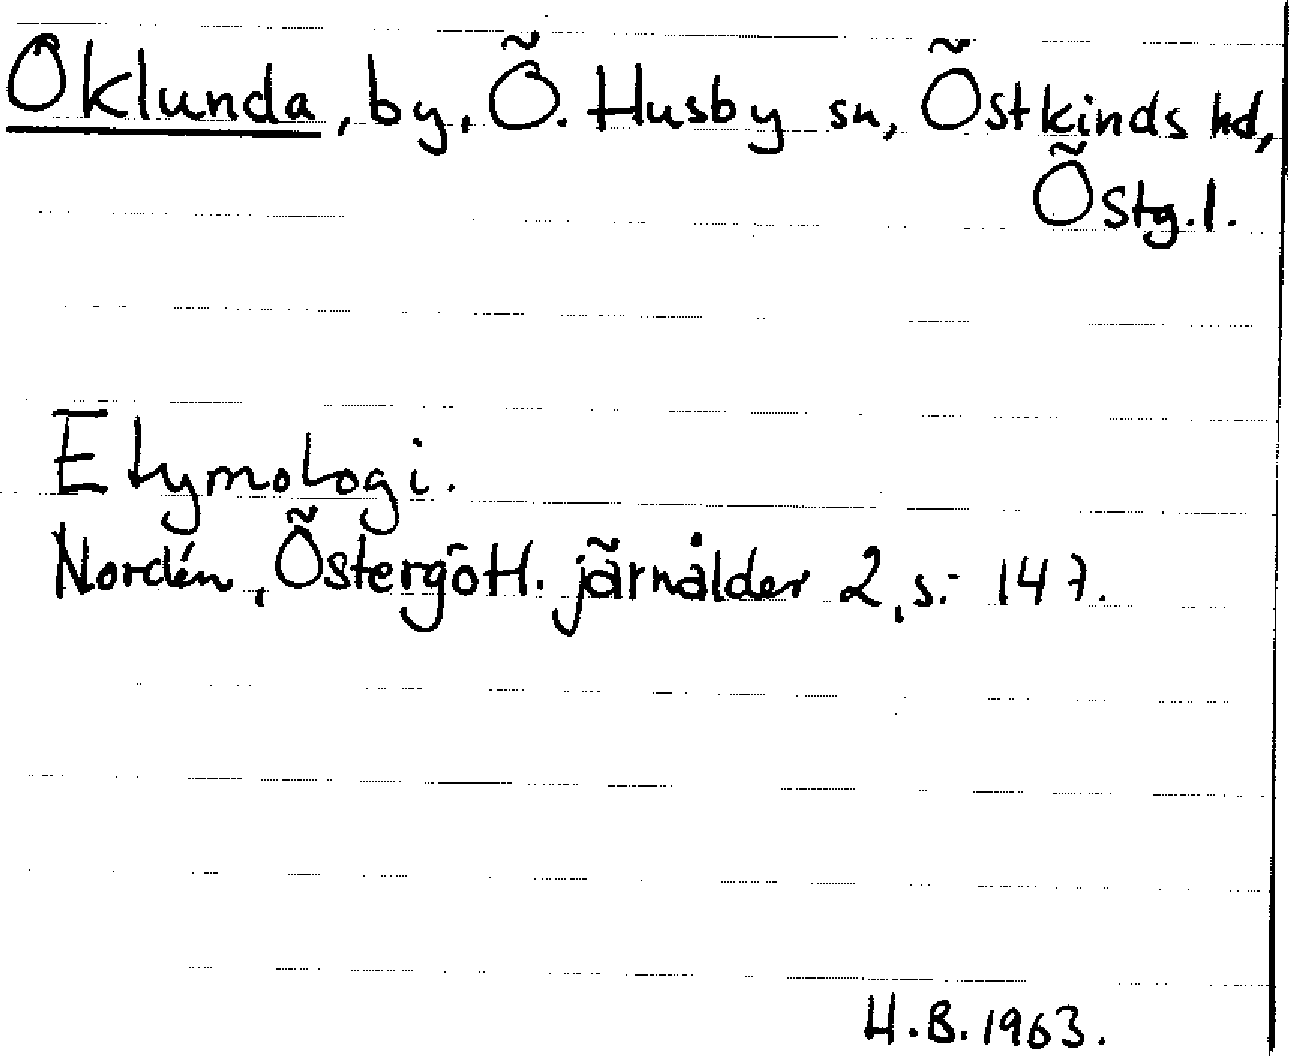 Oklunda, by, Ö. Husby sn, Östkinds hd,
Östg.l.
Etymologi.
Nordén, Östergötl. järnålder 2, s. 147.
H.B. 1963.